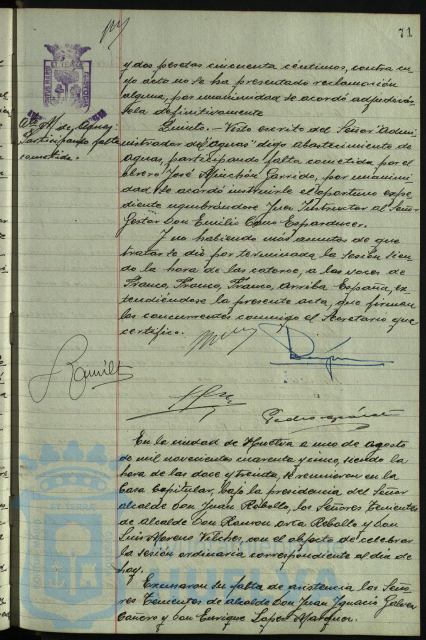 71
y dos pesetas cincuenta céntimos, contra cu-
yo acto no se ha presentado reclamación
alguna, por unanimidad se acordó adjudicár-
sela definitivamente
Admr. de Aguas
Participando falta
cometida.
Quinto. - Visto escrito del Señor "Admi-
nistrador de Aguas" digo abastecimiento de
aguas, participando falta cometida por el
obrero José Minchón Garrido, por unanimi-
dad se acordó instruirle el oportuno expe-
diente nombrándose Juez Instructor al Señor
Gestor Don Emilio Cano Esparducer.
Y no habiendo más asuntos de que
tratar se dió por terminada la sesión sien-
do la hora de las catorce, a las voces de
Franco, Franco, Franco, Arriba España, ex-
tendiéndose la presente acta, que firman
los concurrentes conmigo el Secretario que
certifico.
En la ciudad de Huelva a uno de agosto
de mil novecientos cuarenta y cinco, siendo la
hora de las doce y treinta, se reunieron en la
Casa Capitular, bajo la presidencia del Señor
alcalde Don Juan Rebollo, los Señores Tenientes
de Alcalde Don Ramón Orta Rebollo y Don
Luis Moreno Vilches, con el objeto de celebrar
la sesión ordinaria correspondiente al día de
hoy.
Excusaron su falta de asistencia los Seño-
res Tenientes de alcalde Don Juan Ignacio Gálvez
Cañero y Don Enrique López Márquez.